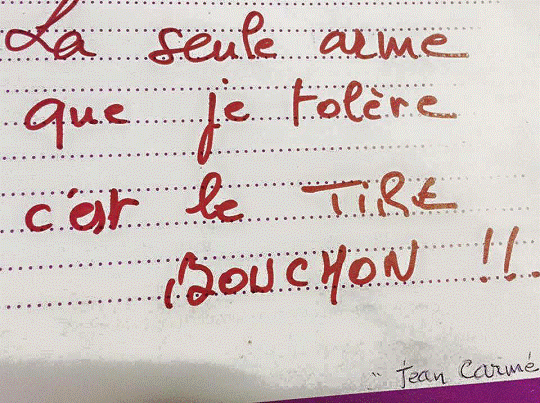 La seule arme
que je tolère
c'est le TIRE
BOUCHON !!.
" Jean Carmé